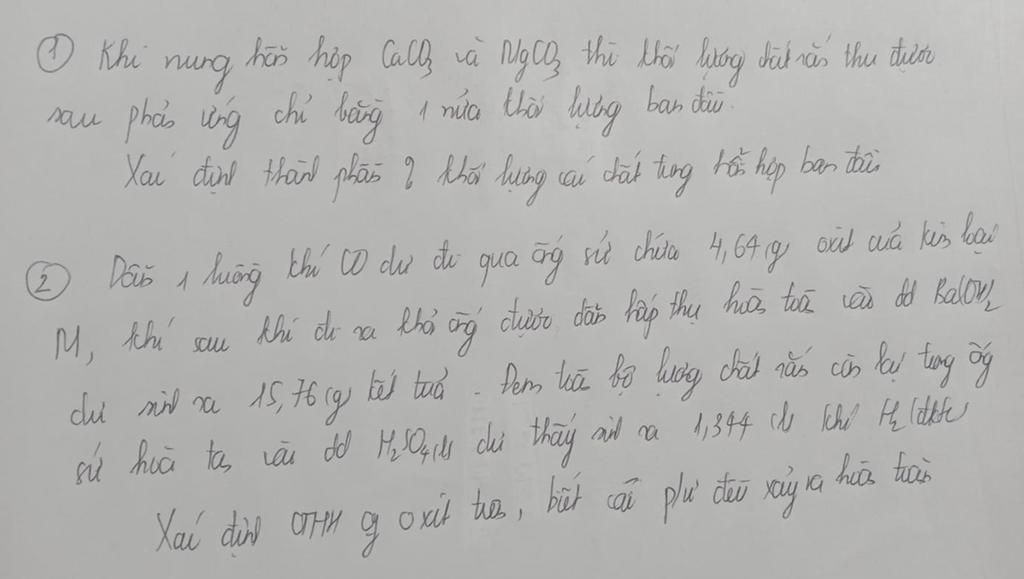 ① Khi nung hỗn hợp CaCO3 và MgCO3 thì khối lượng chất rắn thu được
sau phản ứng chỉ bằng 1 nửa khối lượng ban đầu.
Xác định thành phần % khối lượng các chất trong hỗn hợp ban đầu
② Dẫn 1 luồng khí CO dư đi qua ống sứ chứa 4,64(g) oxit của kim loại
M, khí sau khi đi ra khỏi ống được dẫn hấp thụ hoàn toàn vào dd Ba(OH)2
dư sinh ra 15,76(g) kết tủa. Đem toàn bộ lượng chất rắn còn lại trong ống
sứ hoà tan vào dd H2SO4(l) dư thấy sinh ra 1,344 (l) khí H2(đktc)
Xác định CTHH của oxit trên, biết các pư đều xảy ra hoàn toàn